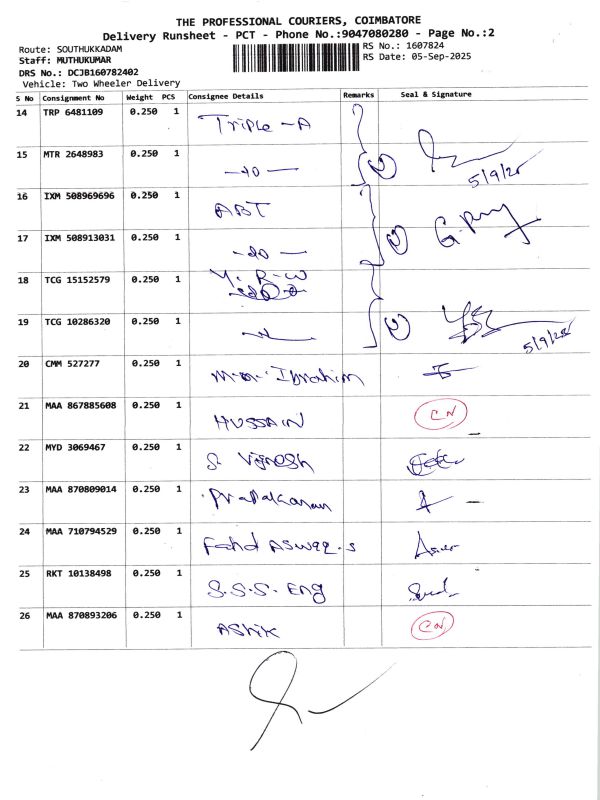 THE PROFESSIONAL COURIERS, COIMBATORE
Delivery Runsheet - PCT - Phone No.:9047080280 - Page No.:2
Route: SOUTHUKKADAM
RS No.: 1607824
Staff: MUTHUKUMAR
RS Date: 05-Sep-2025
DRS No.: DCJB160782402
Vehicle: Two Wheeler Delivery
S No Consignment No Weight PCS Consignee Details Remarks Seal & Signature
14 TRP 6481109 0.250 1 Triple -A
15 MTR 2648983 0.250 1 —do— 2 5/9/25
16 IXM 508969696 0.250 1 ABT
17 IXM 508913031 0.250 1 —do— 2
18 TCG 15152579 0.250 1 Y. R-W
19 TCG 10286320 0.250 1 2 5/9/25
20 CMM 527277 0.250 1 Ibrahim
21 MAA 867885608 0.250 1 HUSSAIN CN
22 MYD 3069467 0.250 1 S. Vignesh
23 MAA 870809014 0.250 1
24 MAA 710794529 0.250 1 Fahd
25 RKT 10138498 0.250 1 S.S.S. Eng
26 MAA 870893206 0.250 1 ASHIK CN